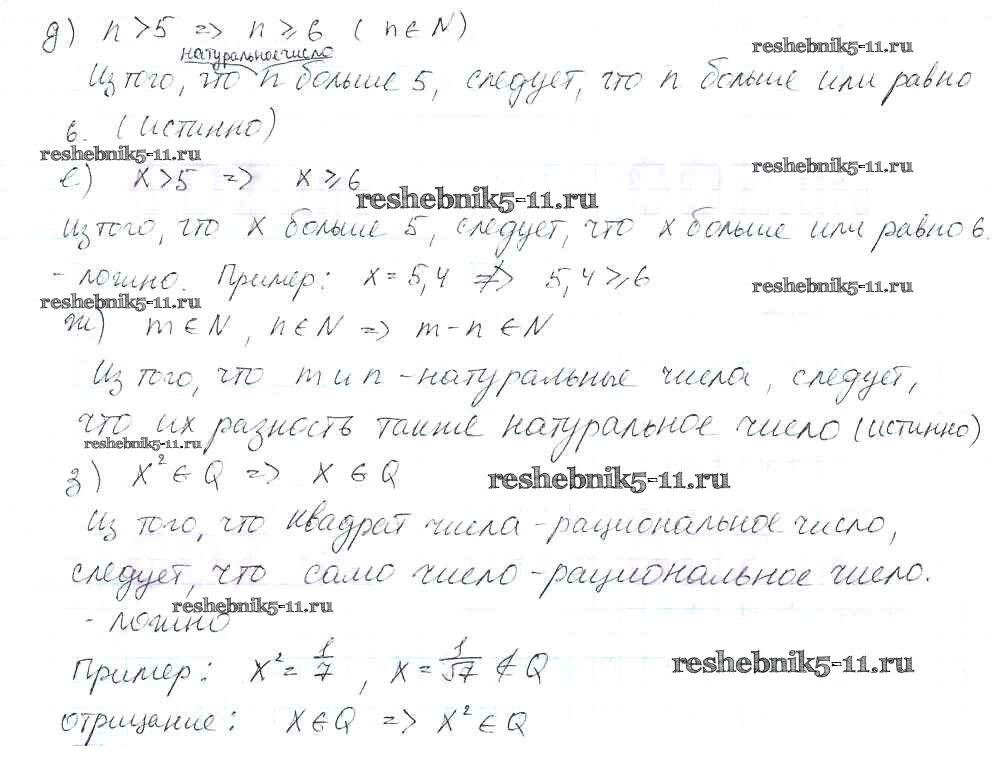 д) n > 5 => n ⩾ 6 ( n ∈ N )
reshebnik5-11.ru
натуральное число
Из того, что n больше 5, следует, что n больше или равно
6. (истинно)
reshebnik5-11.ru
reshebnik5-11.ru
е) x > 5 => x ⩾ 6
reshebnik5-11.ru
Из того, что x больше 5, следует, что x больше или равно 6.
- ложно. Пример: x = 5,4 ≠> 5,4 ⩾ 6
reshebnik5-11.ru
reshebnik5-11.ru
ж) m ∈ N, n ∈ N => m - n ∈ N
Из того, что m и n - натуральные числа, следует,
что их разность также натуральное число (истинно)
reshebnik5-11.ru
з) x² ∈ Q => x ∈ Q
reshebnik5-11.ru
Из того, что квадрат числа - рациональное число,
следует, что само число - рациональное число.
reshebnik5-11.ru
- ложно
Пример: x² = 1/7, x = 1/√7 ∉ Q
reshebnik5-11.ru
отрицание: x ∈ Q => x² ∈ Q